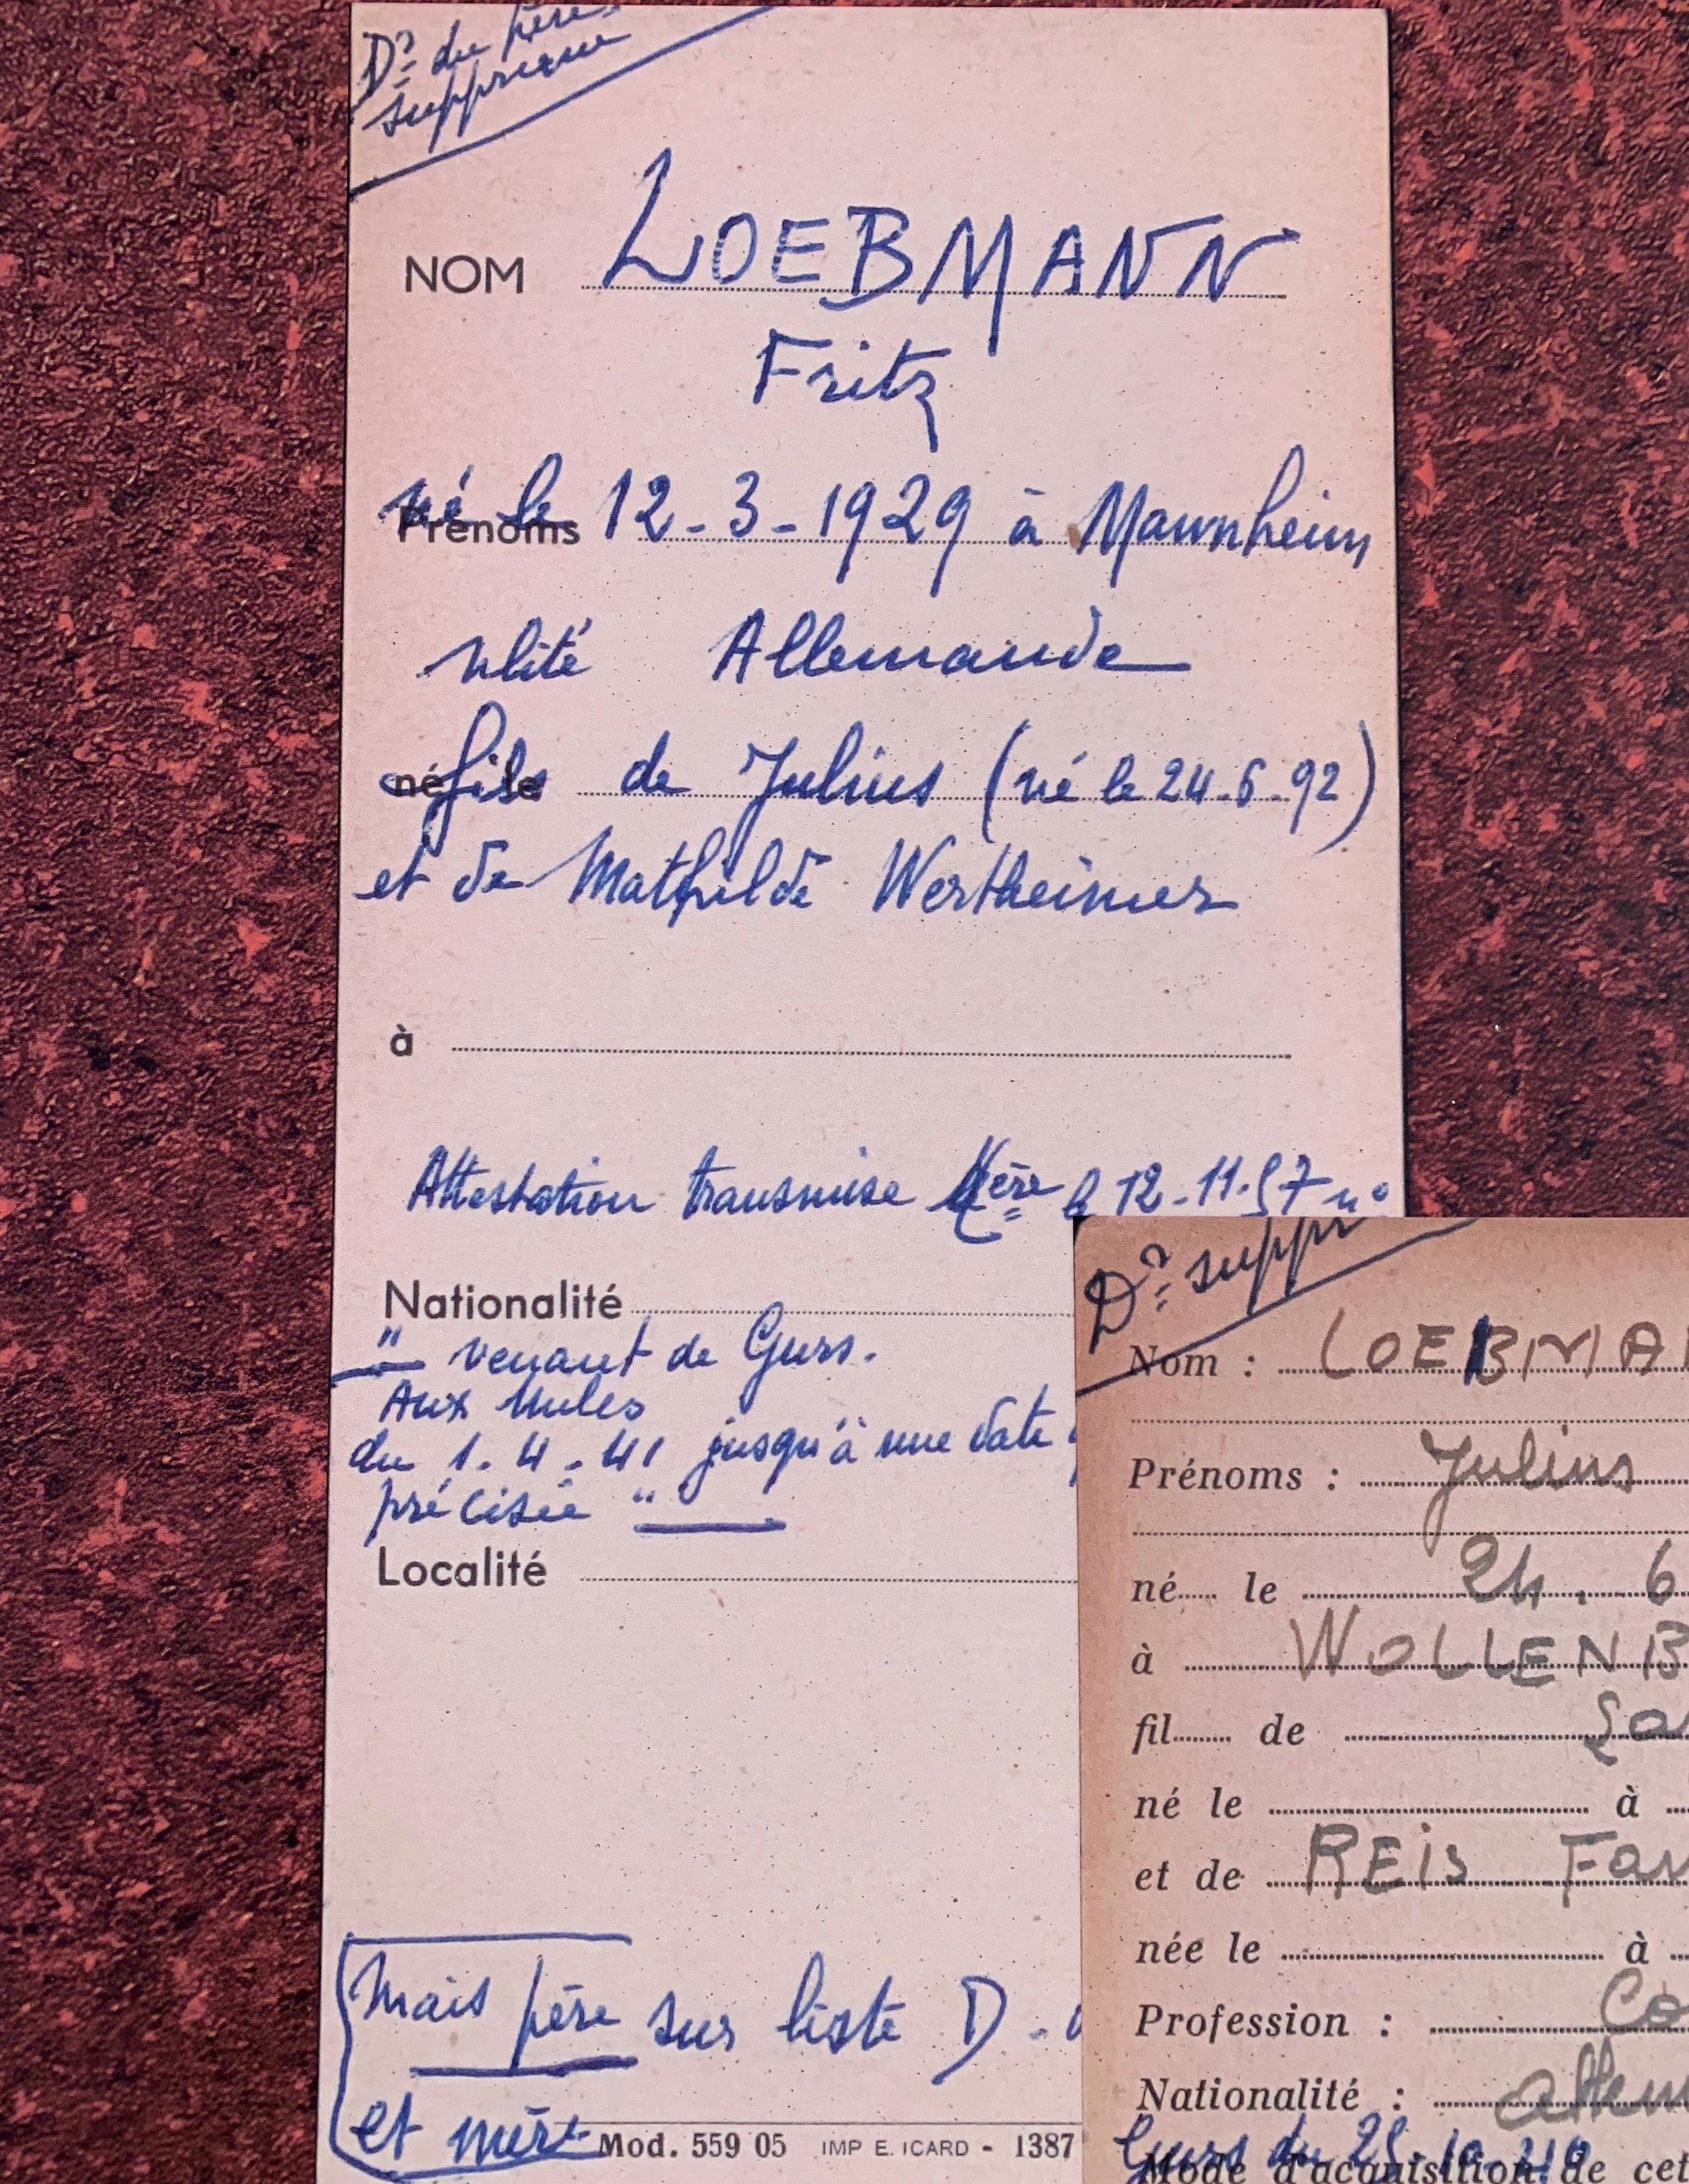 Dr du père
supprimé
NOM LOEBMANN
Fritz
né le 12-3-1929 à Mannheim
Prénoms
nlité Allemande
fils de Julius (né le 24-6-92)
né le
et de Mathilde Wertheimer
à
Attestation transmise le 12-11-57 n°
Nationalité
" venant de Gurs.
Aux Milles
du 1.4.41 jusqu'à une date
précisée "
Localité
mais père sur liste D.
et mère
Mod. 559 05 IMP E. ICARD - 1387
Dr suppr
Nom : LOEBMA
Prénoms : Julius
né le 24. 6
à WOLLENB
fil de
né le à
et de REIS
née le à
Profession : Co
Nationalité : allem
Gurs du 25-10-40
Mode d'acquisition de cet